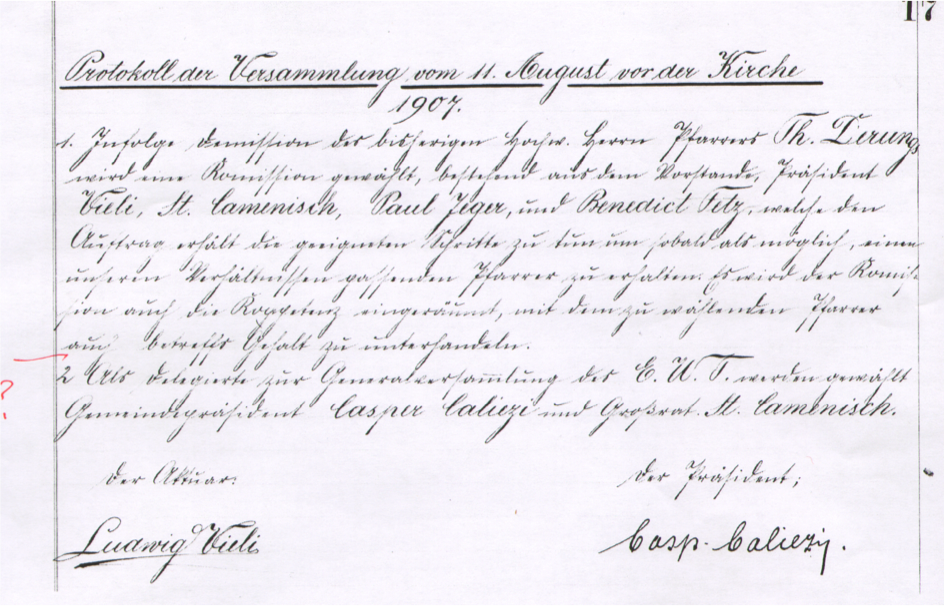 17
Protokoll der Versammlung vom 11. August vor der Kirche
1907.
1. Infolge Demission des bisherigen Hochw. Herrn Pfarrers Th. Derungs
wird eine Komission gewählt, bestehend aus dem Vorstande, Präsident
Vieli, St. Camenisch, Paul Jeger, und Benedict Fetz, welche den
Auftrag erhält die geeigneten Schritte zu tun um sobald als möglich, einen
unseren Verhältnissen passenden Pfarrer zu erhalten. Es wird der Komis-
sion auch die Koppetenz eingeräumt, mit dem zu wählenden Pfarrer
auch betreffs Gehalt zu unterhandeln.
?
2 Als Delegierte zur Generalversammlung des E. U. T. werden gewählt
Gemeindepräsident Casper Caliezi und Großrat. St. Camenisch.
Der Aktuar:
Der Präsident;
Ludwig Vieli
Casp. Caliezi.